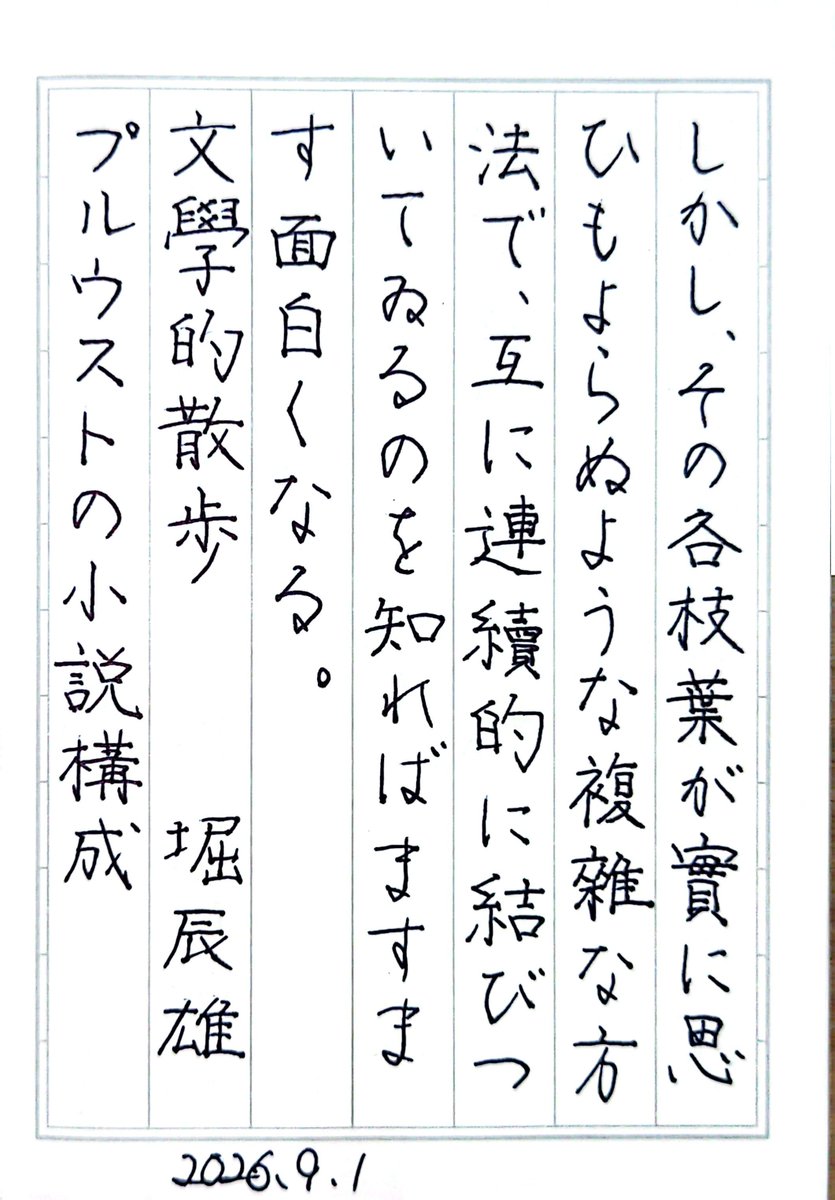 しかし、その各枝葉が實に思
ひもよらぬような複雜な方
法で、互に連續的に結びつ
いてゐるのを知ればますま
す面白くなる。
文學的散歩　堀辰雄
プルウストの小説構成
2026.9.1